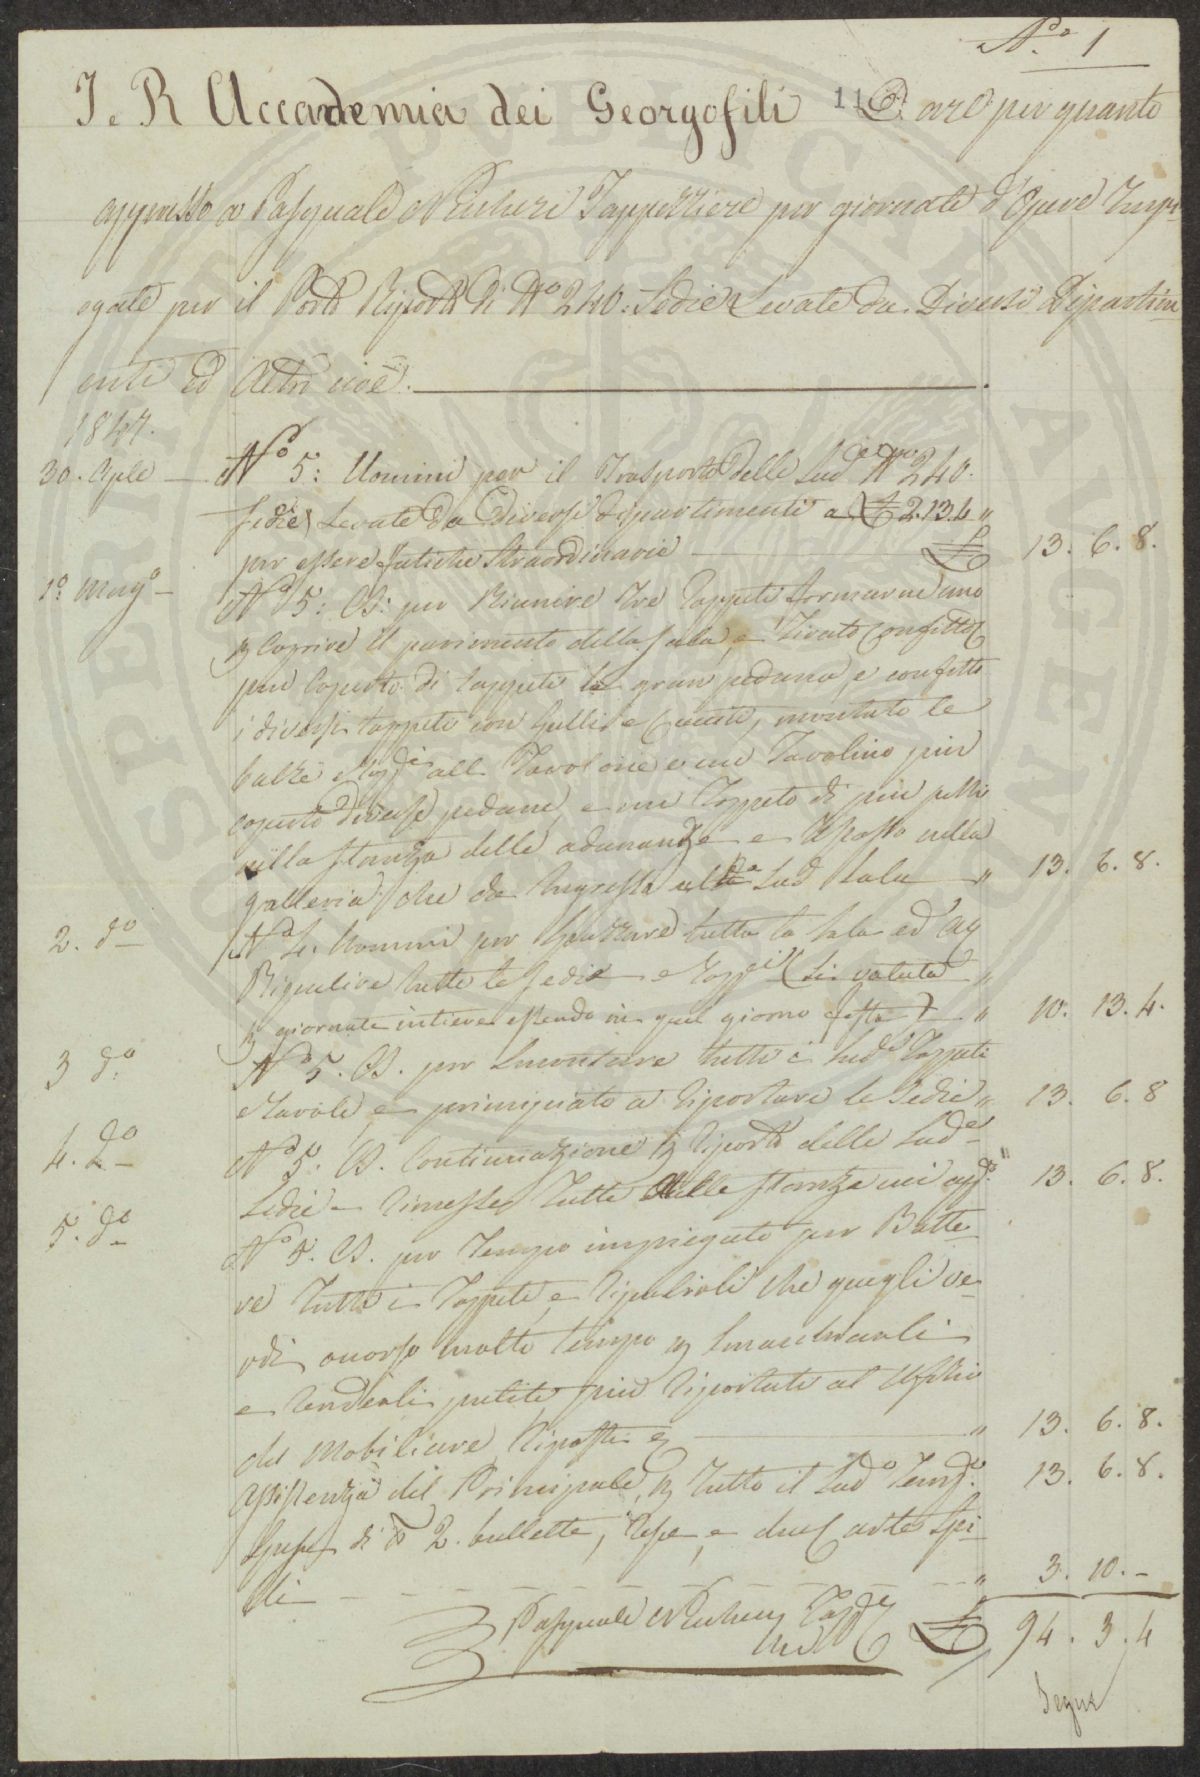 N.o 1
I. R Accademia dei Georgofili 116 Dare per quanto
appresso a Pasquale Tappezziere per giornate d'Opere Impi
egate per il Porto Riporto di N.o 240: Sedie Levate da Diversi Dipartim
enti ed Altri cioè.
1847.
30. Aple N.o 5: Uomini per il Trasporto delle Sud.e N.o 240.
Sedie, Levate da Diversi Dipartimenti a £ 2.13.4 "
per essere fatiche Straordinarie £ 13. 6. 8.
1.o Mag.o N.o 5: D: per Riunire Tre Tappeti formarne uno
Coprire il pavimento della Sala, e Tirato Confitto
più Coperto di tappeti la gran pedana, e confitto
i diversi tappeti con Gulli e Cuciti, montate le
balze e Tapp.ti all Tavolone e un Tavolino più
coperto Diverse pedane, e un Tappeto di più pelli
nella Stanza delle adunanze e Disteso nella
galleria che da Ingresso alla Sud.a Sala " 13. 6. 8.
2. d.o N.o 4. Uomini per Spazzare tutta la Sala ed
Ripulire tutte le Sedie e Tapp.ti (Si valuta "
giornate intiere essendo in quel giorno festa) " 10. 13. 4.
3 d.o N.o 5. D. per Smontare tutti i Sud.i Tappeti
e Tavole, e principiato a Riportare le Sedie " 13. 6. 8
4. d.o N.o 5: D. Continuazione Riporto delle Sud.e
Sedie e Rimesse tutte Nelle Stanze " 13. 6. 8.
5. d.o N.o 5. D. per Tempo impiegato per Batte
re Tutti i Tappeti e Ripulirli che quegli ve
rdi molto tempo Smacchiarli
e Renderli puliti, più Riportati al Uffizio
del Mobiliare, Riposti " 13. 6. 8.
Assistenza del Principale, Tutto il Sud.o Temp.o 13. 6. 8.
Spese di 2. bullette, Refe, e due Carte Spi
lli " 3. 10. -
Pasquale Tapp.re £ 94. 3. 4
Segue